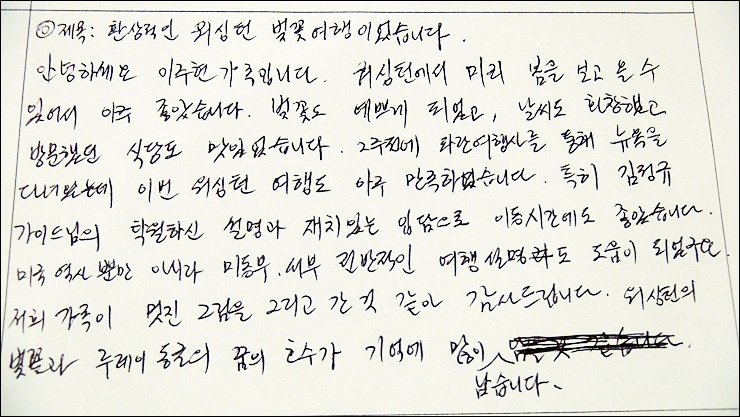 ◎제목: 환상적인 워싱턴 벚꽃여행이었습니다.
안녕하세요 이주현가족입니다. 워싱턴에서 미리 봄을 보고 올 수
있어서 아주 좋았습니다. 벚꽃도 예쁘게 피었고, 날씨도 화창했고
방문했던 식당도 맛있었습니다. 2주전에 파란여행사를 통해 뉴욕을
다녀왔는데 이번 워싱턴 여행도 아주 만족하였습니다. 특히 김정규
가이드님의 탁월하신 설명과 재치있는 입담으로 이동시간에도 좋았습니다.
미국 역사 뿐만 아니라 미동부, 서부 전반적인 여행 설명도 도움이 되었구요.
저희 가족이 멋진 그림을 그리고 간 것 같아 감사드립니다. 워싱턴의
벚꽃과 루레이 동굴의 꿈의 호수가 기억에 많이
남습니다.